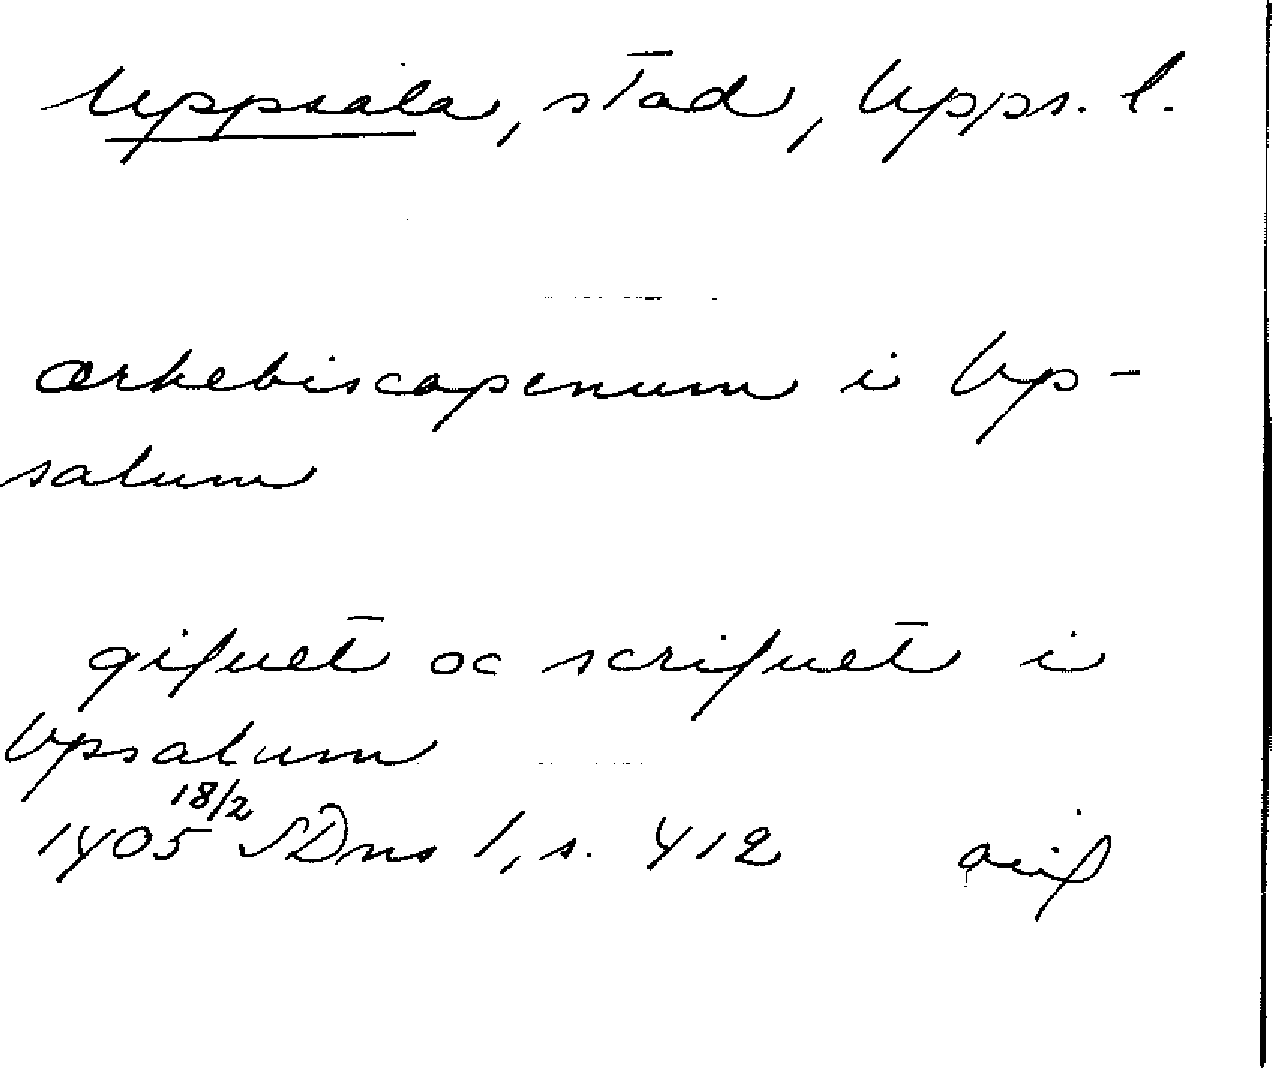 Uppsala, stad, Upps. l.
ærkebiscopenum i Vp-
salum
gifuet oc scrifuet i
Vpsalum
18/2
1405 SDns 1, s. 412